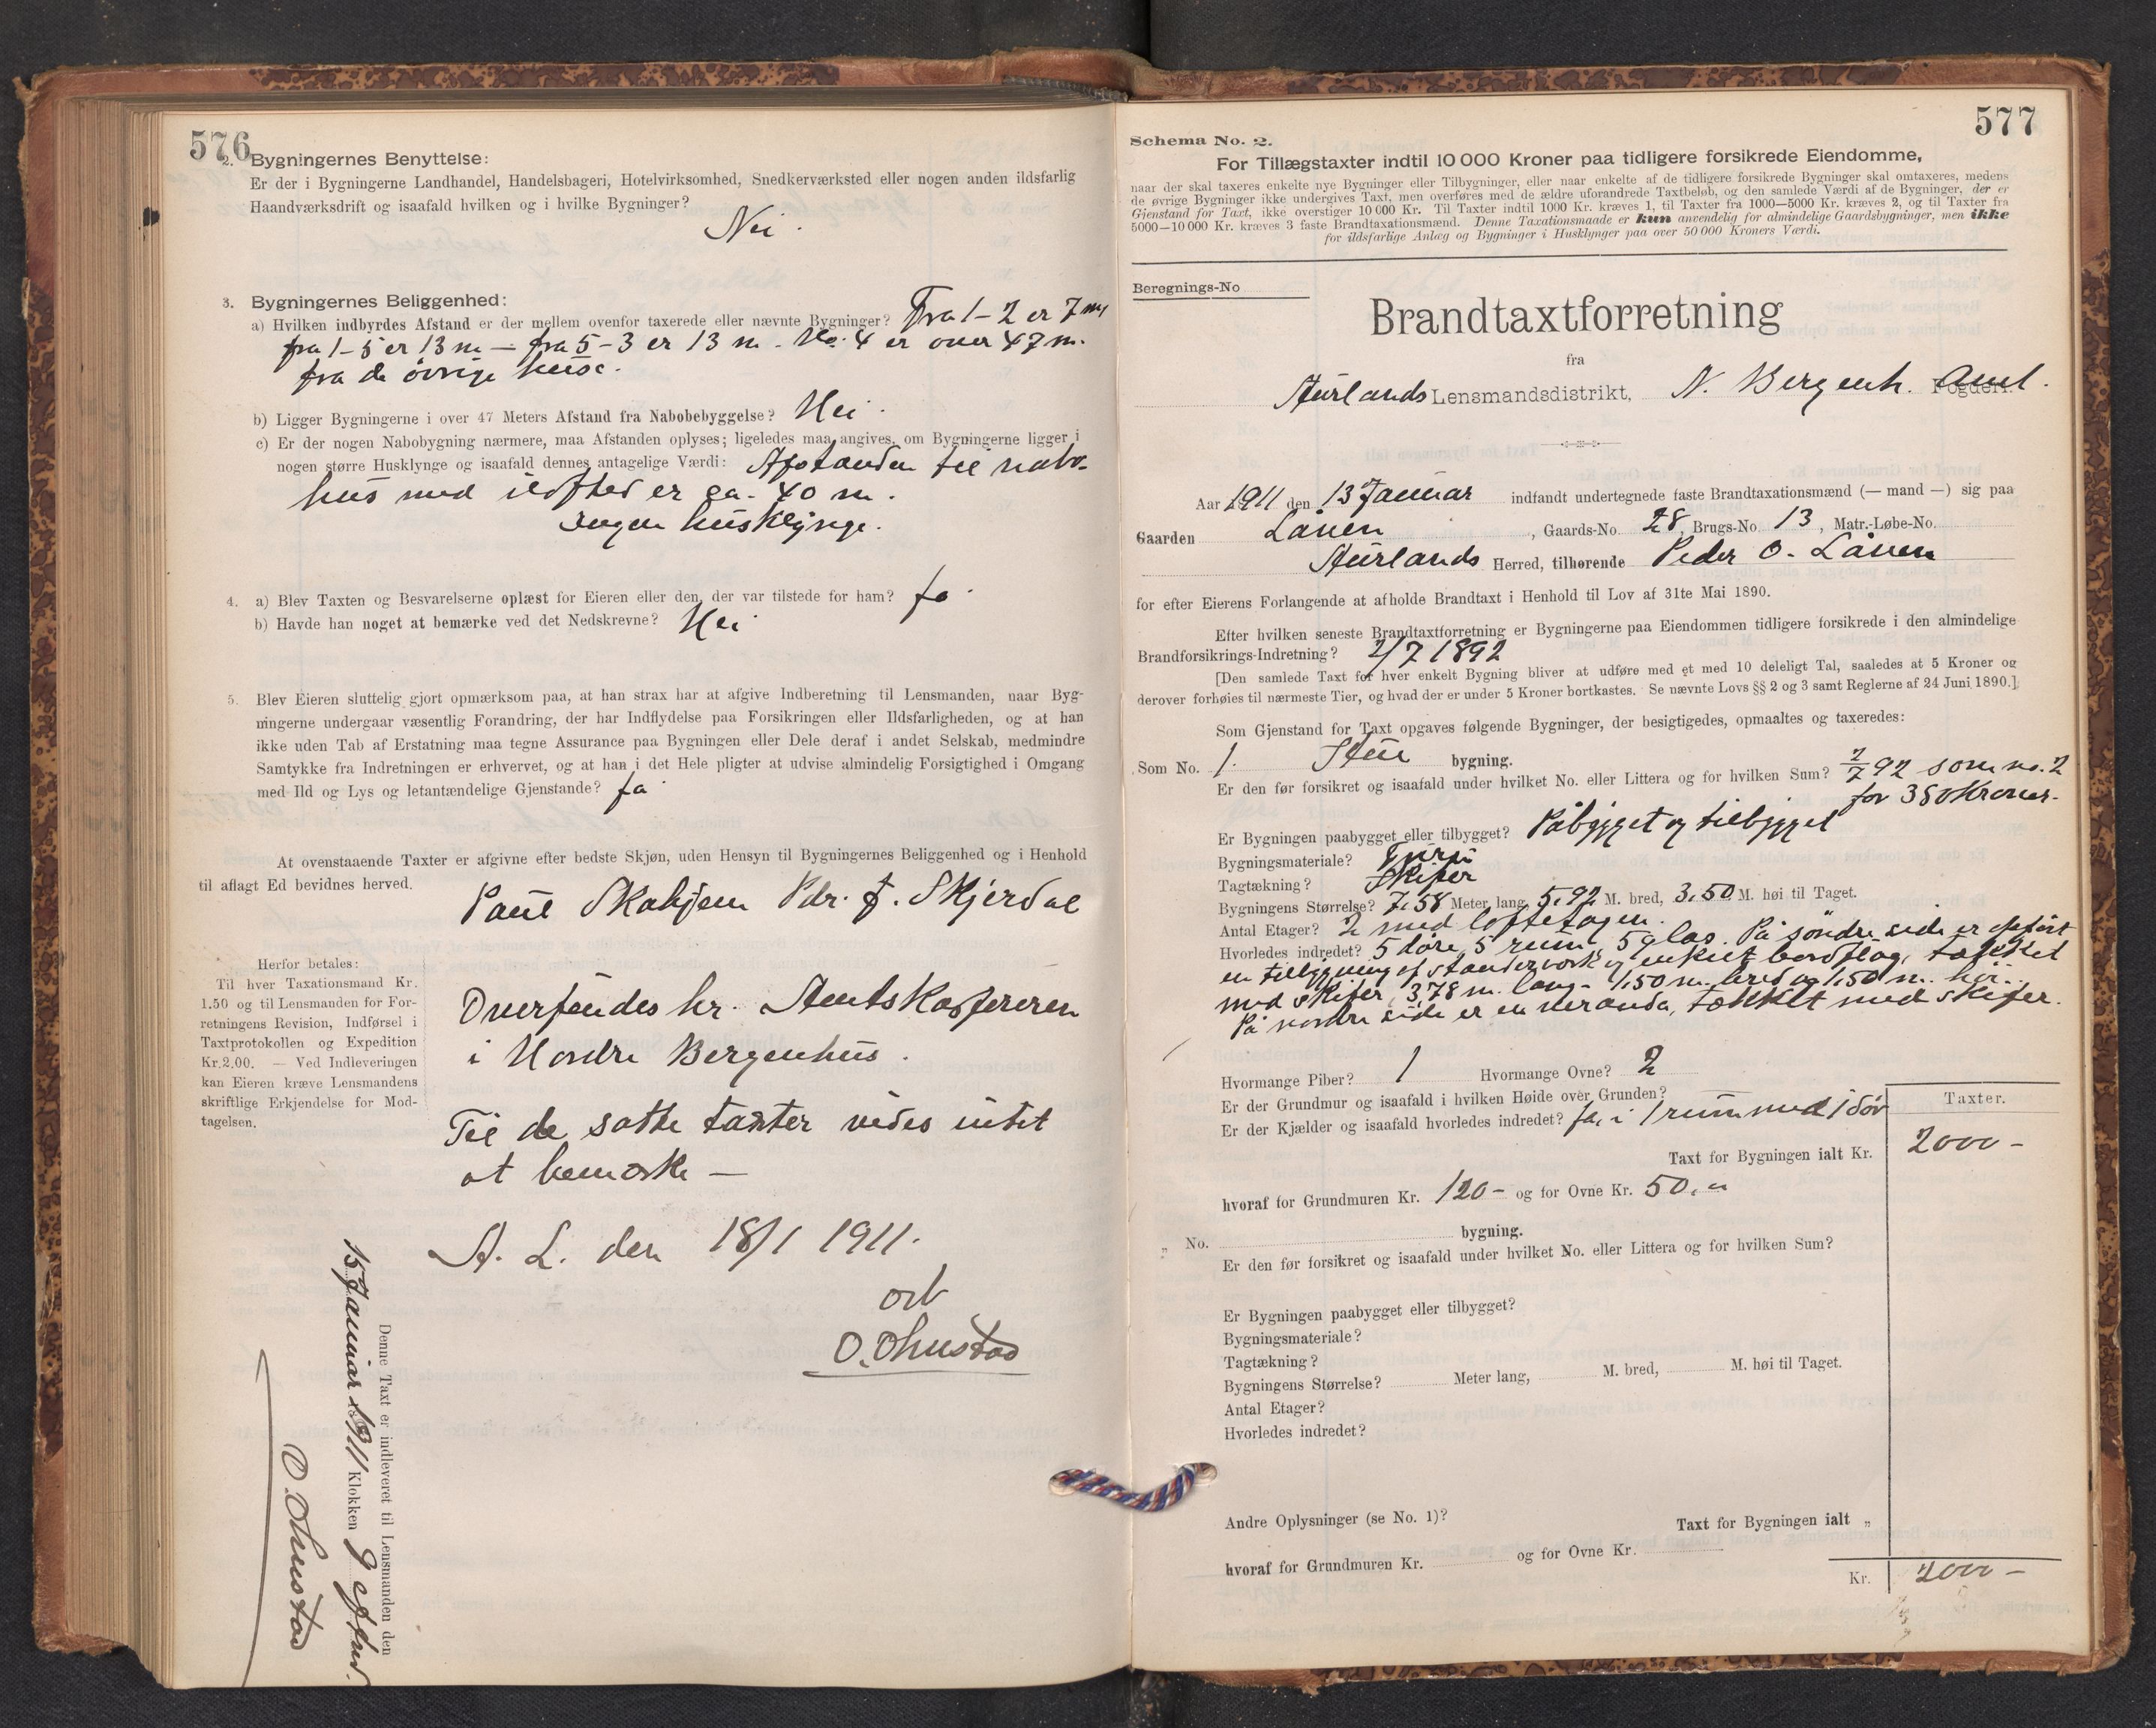 576
2. Bygningernes Benyttelse:
Er der i Bygningerne Landhandel, Handelsbageri, Hotelvirksomhed, Snedkerværksted eller nogen anden ildsfarlig
Haandværksdrift og isaafald hvilken og i hvilke Bygninger?
Nei.
3. Bygningernes Beliggenhed:
a) Hvilken indbyrdes Afstand er der mellem ovenfor taxerede eller nævnte Bygninger? Fra 1-2 er 7 m,
fra 1-5 er 13 m — fra 5-3 er 13 m. No. 4 er over 47 m.
fra de övrige huse.
b) Ligger Bygningerne i over 47 Meters Afstand fra Nabobebyggelse? Nei.
c) Er der nogen Nabobygning nærmere, maa Afstanden oplyses; ligeledes maa angives, om Bygningerne ligger i
nogen større Husklynge og isaafald dennes antagelige Værdi: Afstanden til nabo-
hus med ildsted er ca. 40 m.
Ingen husklynge.
4. a) Blev Taxten og Besvarelserne oplæst for Eieren eller den, der var tilstede for ham? Ja.
b) Havde han noget at bemærke ved det Nedskrevne? Nei
5. Blev Eieren sluttelig gjort opmærksom paa, at han strax har at afgive Indberetning til Lensmanden, naar Byg-
ningerne undergaar væsentlig Forandring, der har Indflydelse paa Forsikringen eller Ildsfarligheden, og at han
ikke uden Tab af Erstatning maa tegne Assurance paa Bygningen eller Dele deraf i andet Selskab, medmindre
Samtykke fra Indretningen er erhvervet, og at han i det Hele pligter at udvise almindelig Forsigtighed i Omgang
med Ild og Lys og letantændelige Gjenstande? Ja
At ovenstaaende Taxter er afgivne efter bedste Skjøn, uden Hensyn til Bygningernes Beliggenhed og i Henhold
til aflagt Ed bevidnes herved.
Paul Skahjem Pdr. J. Skjerdal
Herfor betales:
Til hver Taxationsmand Kr.
1.50 og til Lensmanden for For-
retningens Revision, Indførsel i
Taxtprotokollen og Expedition
Kr. 2.00. — Ved Indleveringen
kan Eieren kræve Lensmandens
skriftlige Erkjendelse for Mod-
tagelsen.
Oversendes hr. Amtskassereren
i Nordre Bergenhus.
Til de satte taxter vides intet
at bemærke —
A. L. den 18/1 1911.
O. Ohnstad
Denne Taxt er indleveret til Lensmanden den
15 Januar 1911 Klokken 9 efterm.
O. Ohnstad
577
Schema No. 2.
For Tillægstaxter indtil 10 000 Kroner paa tidligere forsikrede Eiendomme,
naar der skal taxeres enkelte nye Bygninger eller Tilbygninger, eller naar enkelte af de tidligere forsikrede Bygninger skal omtaxeres, medens
de øvrige Bygninger ikke undergives Taxt, men overføres med de ældre uforandrede Taxtbeløb, og den samlede Værdi af de Bygninger, der er
Gjenstand for Taxt, ikke overstiger 10 000 Kr. Til Taxter indtil 1000 Kr. kræves 1, til Taxter fra 1000—5000 Kr. kræves 2, og til Taxter fra
5000—10 000 Kr. kræves 3 faste Brandtaxationsmænd. Denne Taxationsmaade er kun anvendelig for almindelige Gaardsbygninger, men ikke
for ildsfarlige Anlæg og Bygninger i Husklynger paa over 50 000 Kroners Værdi.
Beregnings-No
Brandtaxtforretning
fra
Aurlands Lensmandsdistrikt, N. Bergenh. Amt. Fogderi.
Aar 1911 den 13 Januar indfandt undertegnede faste Brandtaxationsmænd (— mand —) sig paa
Gaarden Låven, Gaards-No 28, Brugs-No 13, Matr.-Løbe-No.
Aurlands Herred, tilhørende Peder O. Låven
for efter Eierens Forlangende at afholde Brandtaxt i Henhold til Lov af 31te Mai 1890.
Efter hvilken seneste Brandtaxtforretning er Bygningerne paa Eiendommen tidligere forsikrede i den almindelige
Brandforsikrings-Indretning? 2/7 1892
[Den samlede Taxt for hver enkelt Bygning bliver at udføre med et med 10 deleligt Tal, saaledes at 5 Kroner og
derover forhøies til nærmeste Tier, og hvad der er under 5 Kroner bortkastes. Se nævnte Lovs §§ 2 og 3 samt Reglerne af 24 Juni 1890.]
Som Gjenstand for Taxt opgaves følgende Bygninger, der besigtigedes, opmaaltes og taxeredes:
Som No. 1. Stue bygning.
Er den før forsikret og isaafald under hvilket No. eller Littera og for hvilken Sum? 2/7 92 som no. 2
for 380 Kroner.
Er Bygningen paabygget eller tilbygget? Påbygget og tilbygget
Bygningsmateriale? Furu
Tagtækning? Skifer
Bygningens Størrelse? 7.58 Meter lang, 5.92 M. bred, 3.50 M. høi til Taget.
Antal Etager? 2 med loftetagen.
Hvorledes indredet? 5 döre, 5 rum, 5 glas. På söndre side er opfört
en tilbygning af standerverk og enkelt bordflag, tækket
med skifer, 3,78 m. lang - 1,50 m. bred og 1,50 m. höi.
På nordre side er en veranda, tækket med skifer.
Hvormange Piber? 1 Hvormange Ovne? 2
Er der Grundmur og isaafald i hvilken Høide over Grunden?
Er der Kjælder og isaafald hvorledes indredet? Ja, i 1 rum med 1 dör
Taxter.
Taxt for Bygningen ialt Kr. 2000 -
hvoraf for Grundmuren Kr. 120 - og for Ovne Kr. 50. "
„ No. bygning.
Er den før forsikret og isaafald under hvilket No. eller Littera og for hvilken Sum?
Er Bygningen paabygget eller tilbygget?
Bygningsmateriale?
Tagtækning?
Bygningens Størrelse? Meter lang, M. bred, M. høi til Taget.
Antal Etager?
Hvorledes indredet?
Andre Oplysninger (se No. 1)? Taxt for Bygningen ialt „
hvoraf for Grundmuren Kr. og for Ovne Kr.
Kr. 2000 -